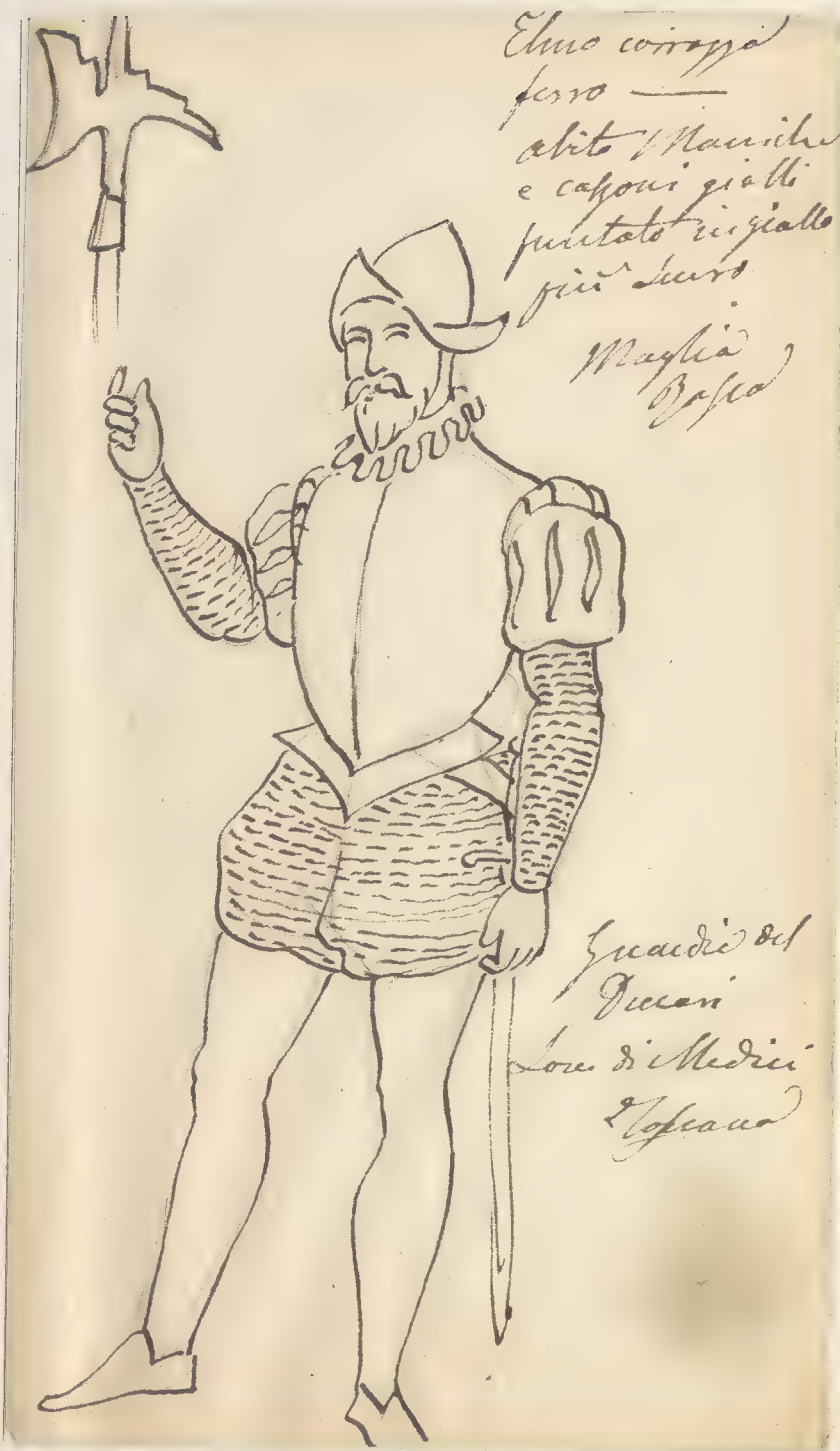 Elmo corrazza
ferro —
abito Maniche
e calzoni gialli
puntato in giallo
più scuro
Maglia
Guardie del
Ducari
di Medici
Toscana